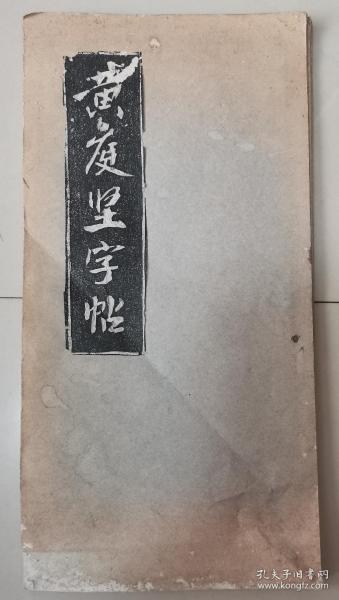 黄庭坚字帖
孔夫子旧书网
www.kongfz.com